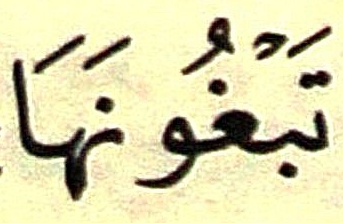 تَبْغُونَهَا